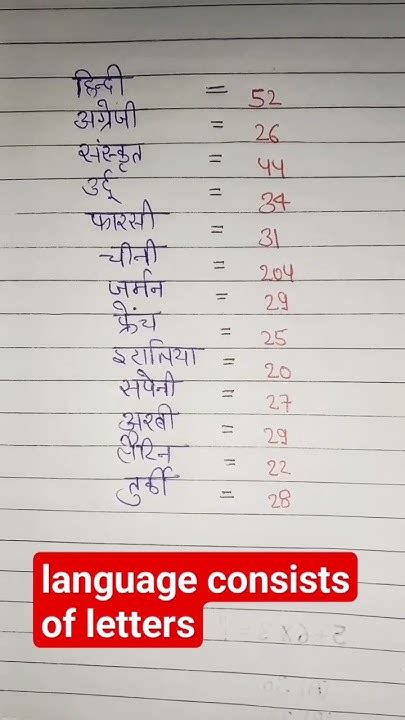 हिन्दी = 52
अग्रेजी = 26
संस्कृत = 44
उर्दू = 34
फारसी = 31
चीनी = 204
जर्मन = 29
फ्रेंच = 25
इटालिया = 20
सपेनी = 27
अरबी = 29
लैटिन = 22
तुर्की = 28
language consists
of letters